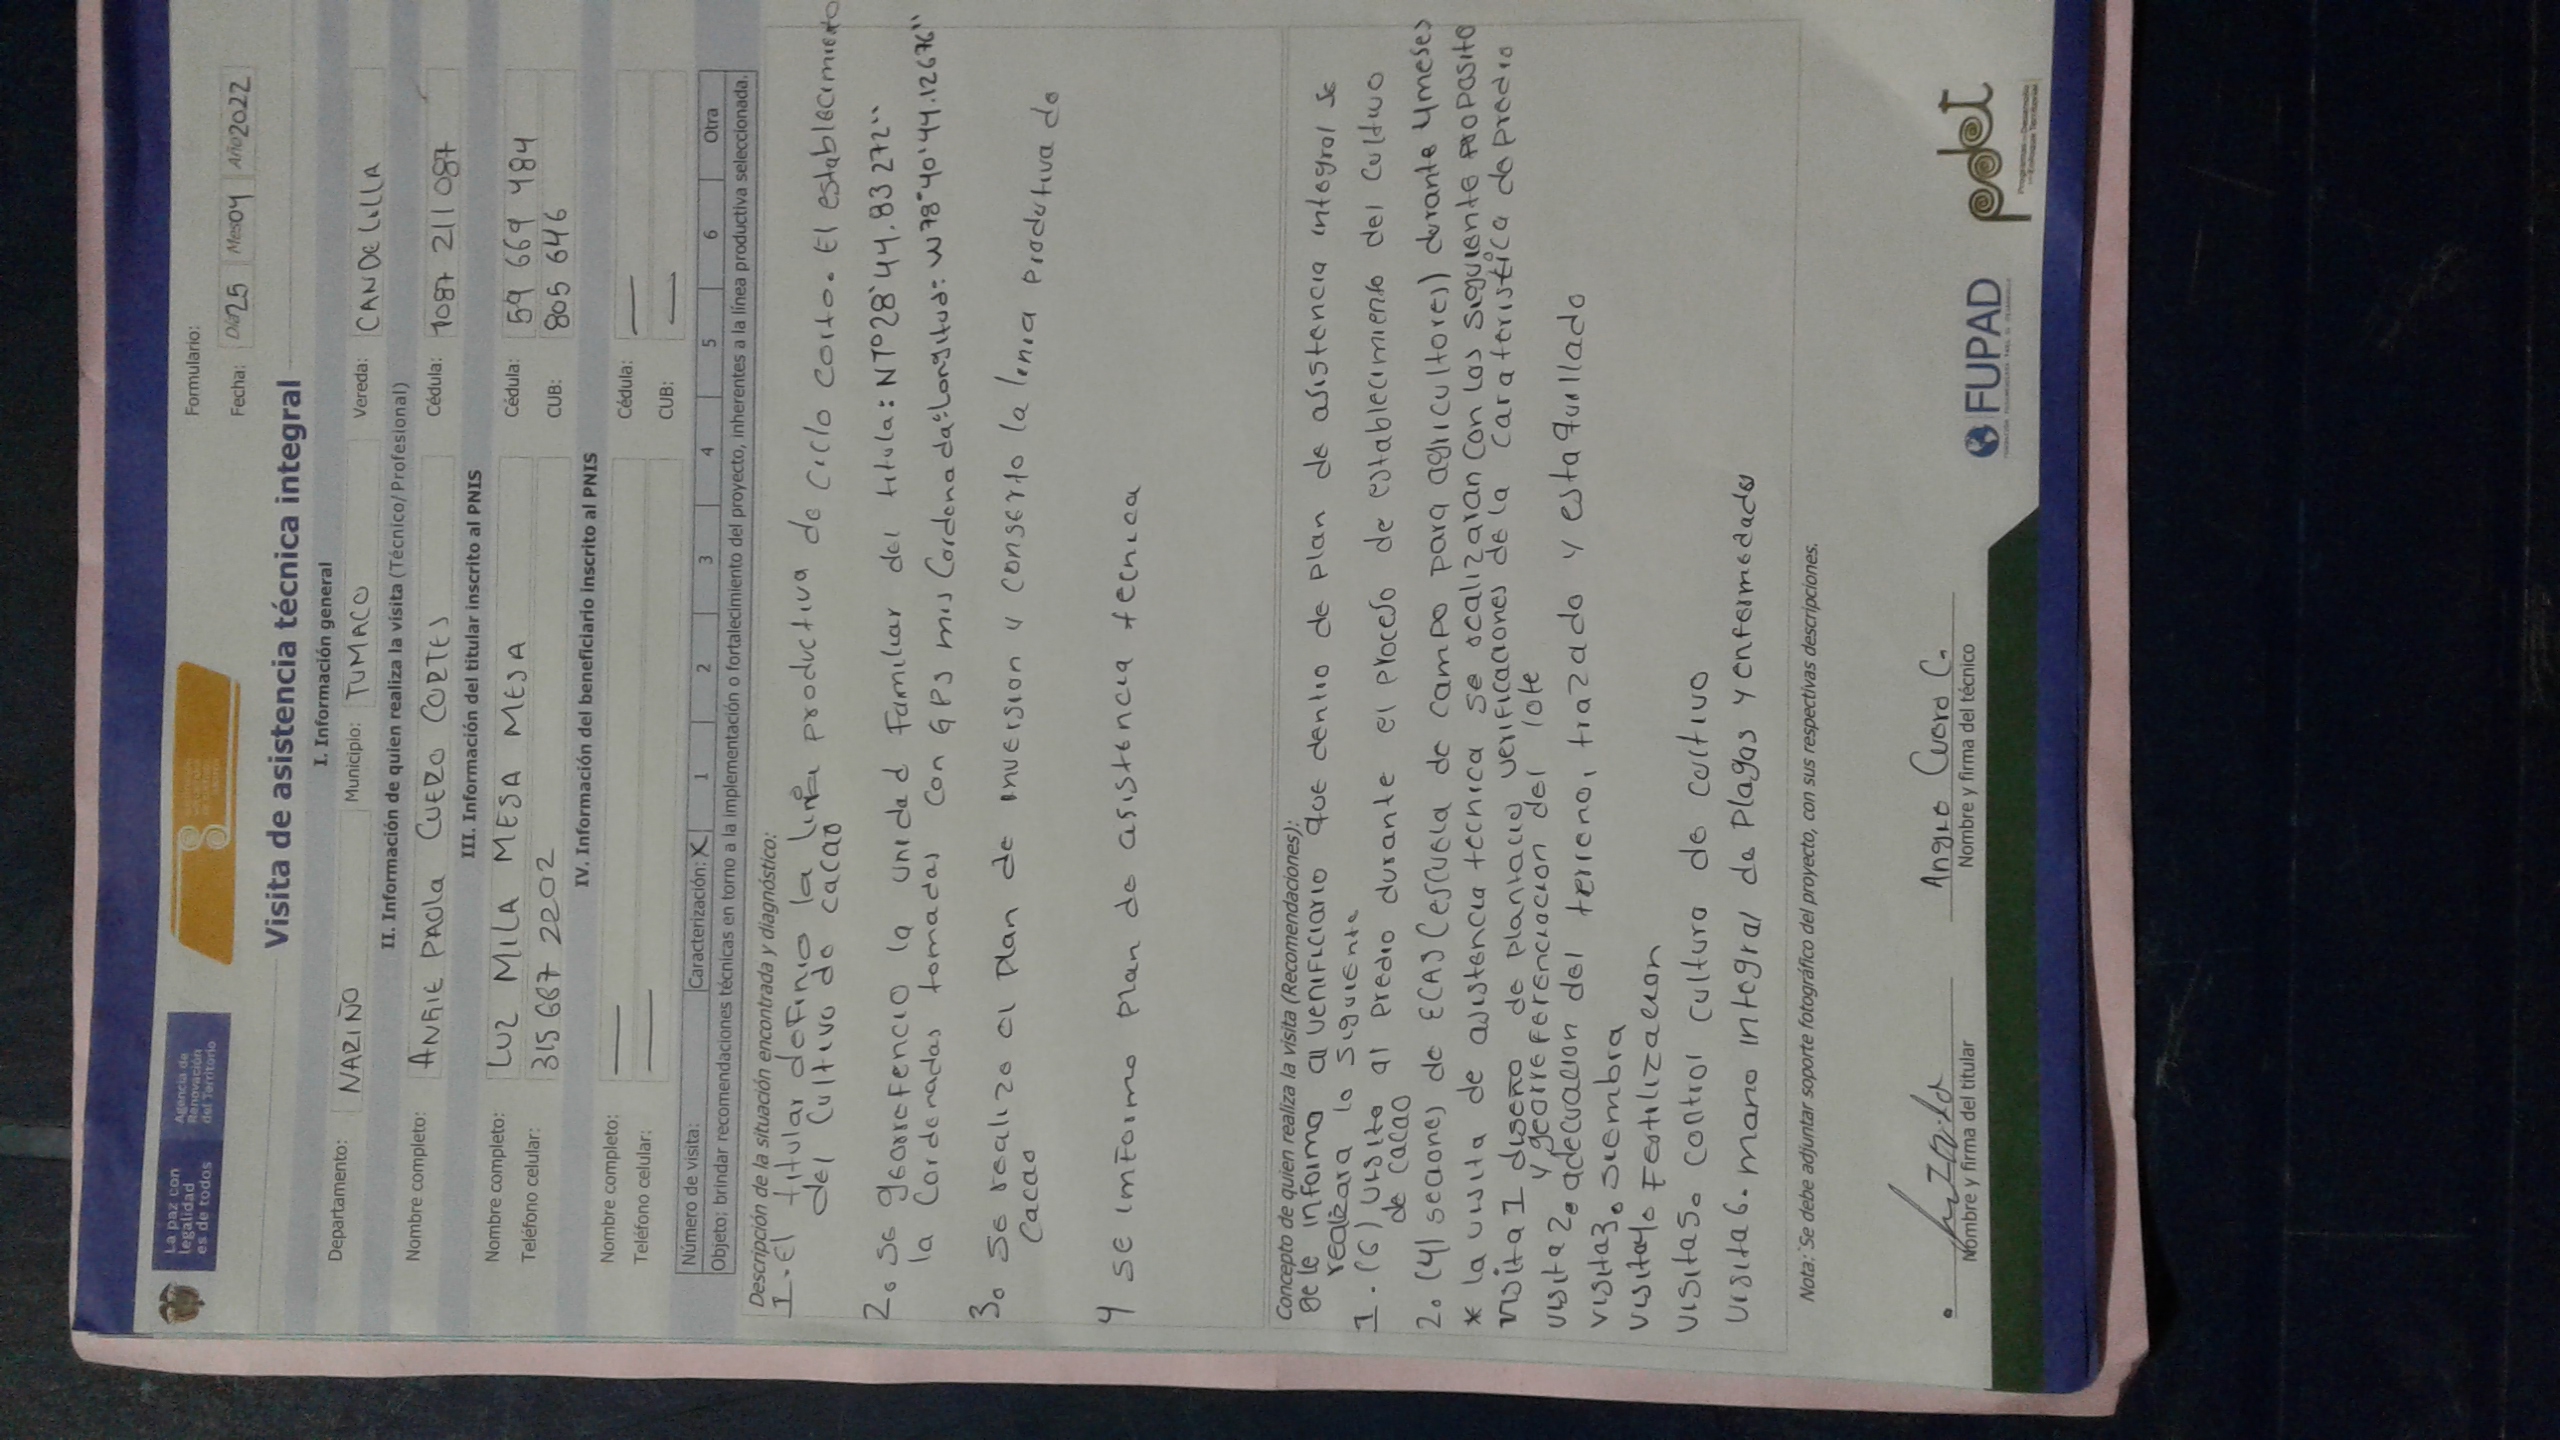 La paz con
legalidad
es de todos
Agencia de
Renovación
del Territorio
Formulario:
Fecha: Día 25 Mes 04 Año 2022
Visita de asistencia técnica integral
I. Información general
Departamento: NARIÑO Municipio: TUMACO Vereda: CANDELILLA
II. Información de quien realiza la visita (Técnico/Profesional)
Nombre completo: ANGIE PAOLA CUERO CORTES Cédula: 1087 211 087
III. Información del titular inscrito al PNIS
Nombre completo: LUZ MILA MESA MESA Cédula: 59 669 484
Teléfono celular: 315 687 2202 CUB: 805 646
IV. Información del beneficiario inscrito al PNIS
Nombre completo: — Cédula: —
Teléfono celular: — CUB: —
Número de visita: Caracterización: X 1 2 3 4 5 6 Otra
Objeto: brindar recomendaciones técnicas en torno a la implementación o fortalecimiento del proyecto, inherentes a la línea productiva seleccionada.
Descripción de la situación encontrada y diagnóstico:
1. El titular definio la linea productiva de ciclo corto. El establecimiento
del cultivo de cacao
2. se georrefencio la unidad Familiar del titula: N1°28'44.83272"
la Cordenadas tomadas con GPS mis Cordenada: Longitud: W78°40'44.12676"
3. Se realizo el plan de inversion y conserto la linia productiva de
Cacao
4 se imformo plan de asistencia tecnica
Concepto de quien realiza la visita (Recomendaciones):
se le informo al venificiario que dentro de plan de asistencia integral se
realizara lo siguiente
1. (6) visita al predio durante el proceso de establecimiento del cultivo
de cacao
2. (4) seciones de ECAS (escuela de campo para agricultores) durante 4 meses
* la visita de asistencia tecnica se realizaran con los siguiente proposito
visita 1 diseño de plantacio verificaciones de la carateristica de predio
y georreferenciacion del lote
visita 2. adecuacion del terreno, trazado y estaquillado
visita 3. siembra
visita 4. Fertilizacion
visita 5. control cultura de cultivo
visita 6. mano integral de plagas y enfermedades
Nota: Se debe adjuntar soporte fotográfico del proyecto, con sus respectivas descripciones.
Angie Cuero C.
Nombre y firma del titular
Nombre y firma del técnico
FUPAD
pdet